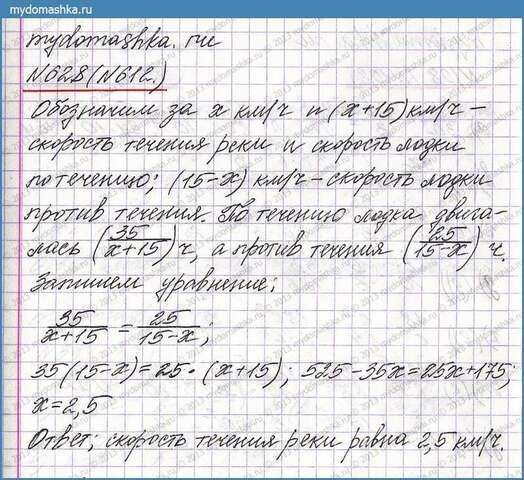 mydomashka.ru
mydomashka.ru
№628(№612.)
Обозначим за x км/ч и (x+15) км/ч –
скорость течения реки и скорость лодки
по течению; (15-x) км/ч – скорость лодки
против течения. По течению лодка двига-
лась (35/(x+15)) ч, а против течения (25/(15-x)) ч.
Запишем уравнение:
35/(x+15) = 25/(15-x);
35(15-x)=25·(x+15); 525-35x=25x+175;
x=2,5
Ответ: скорость течения реки равна 2,5 км/ч.